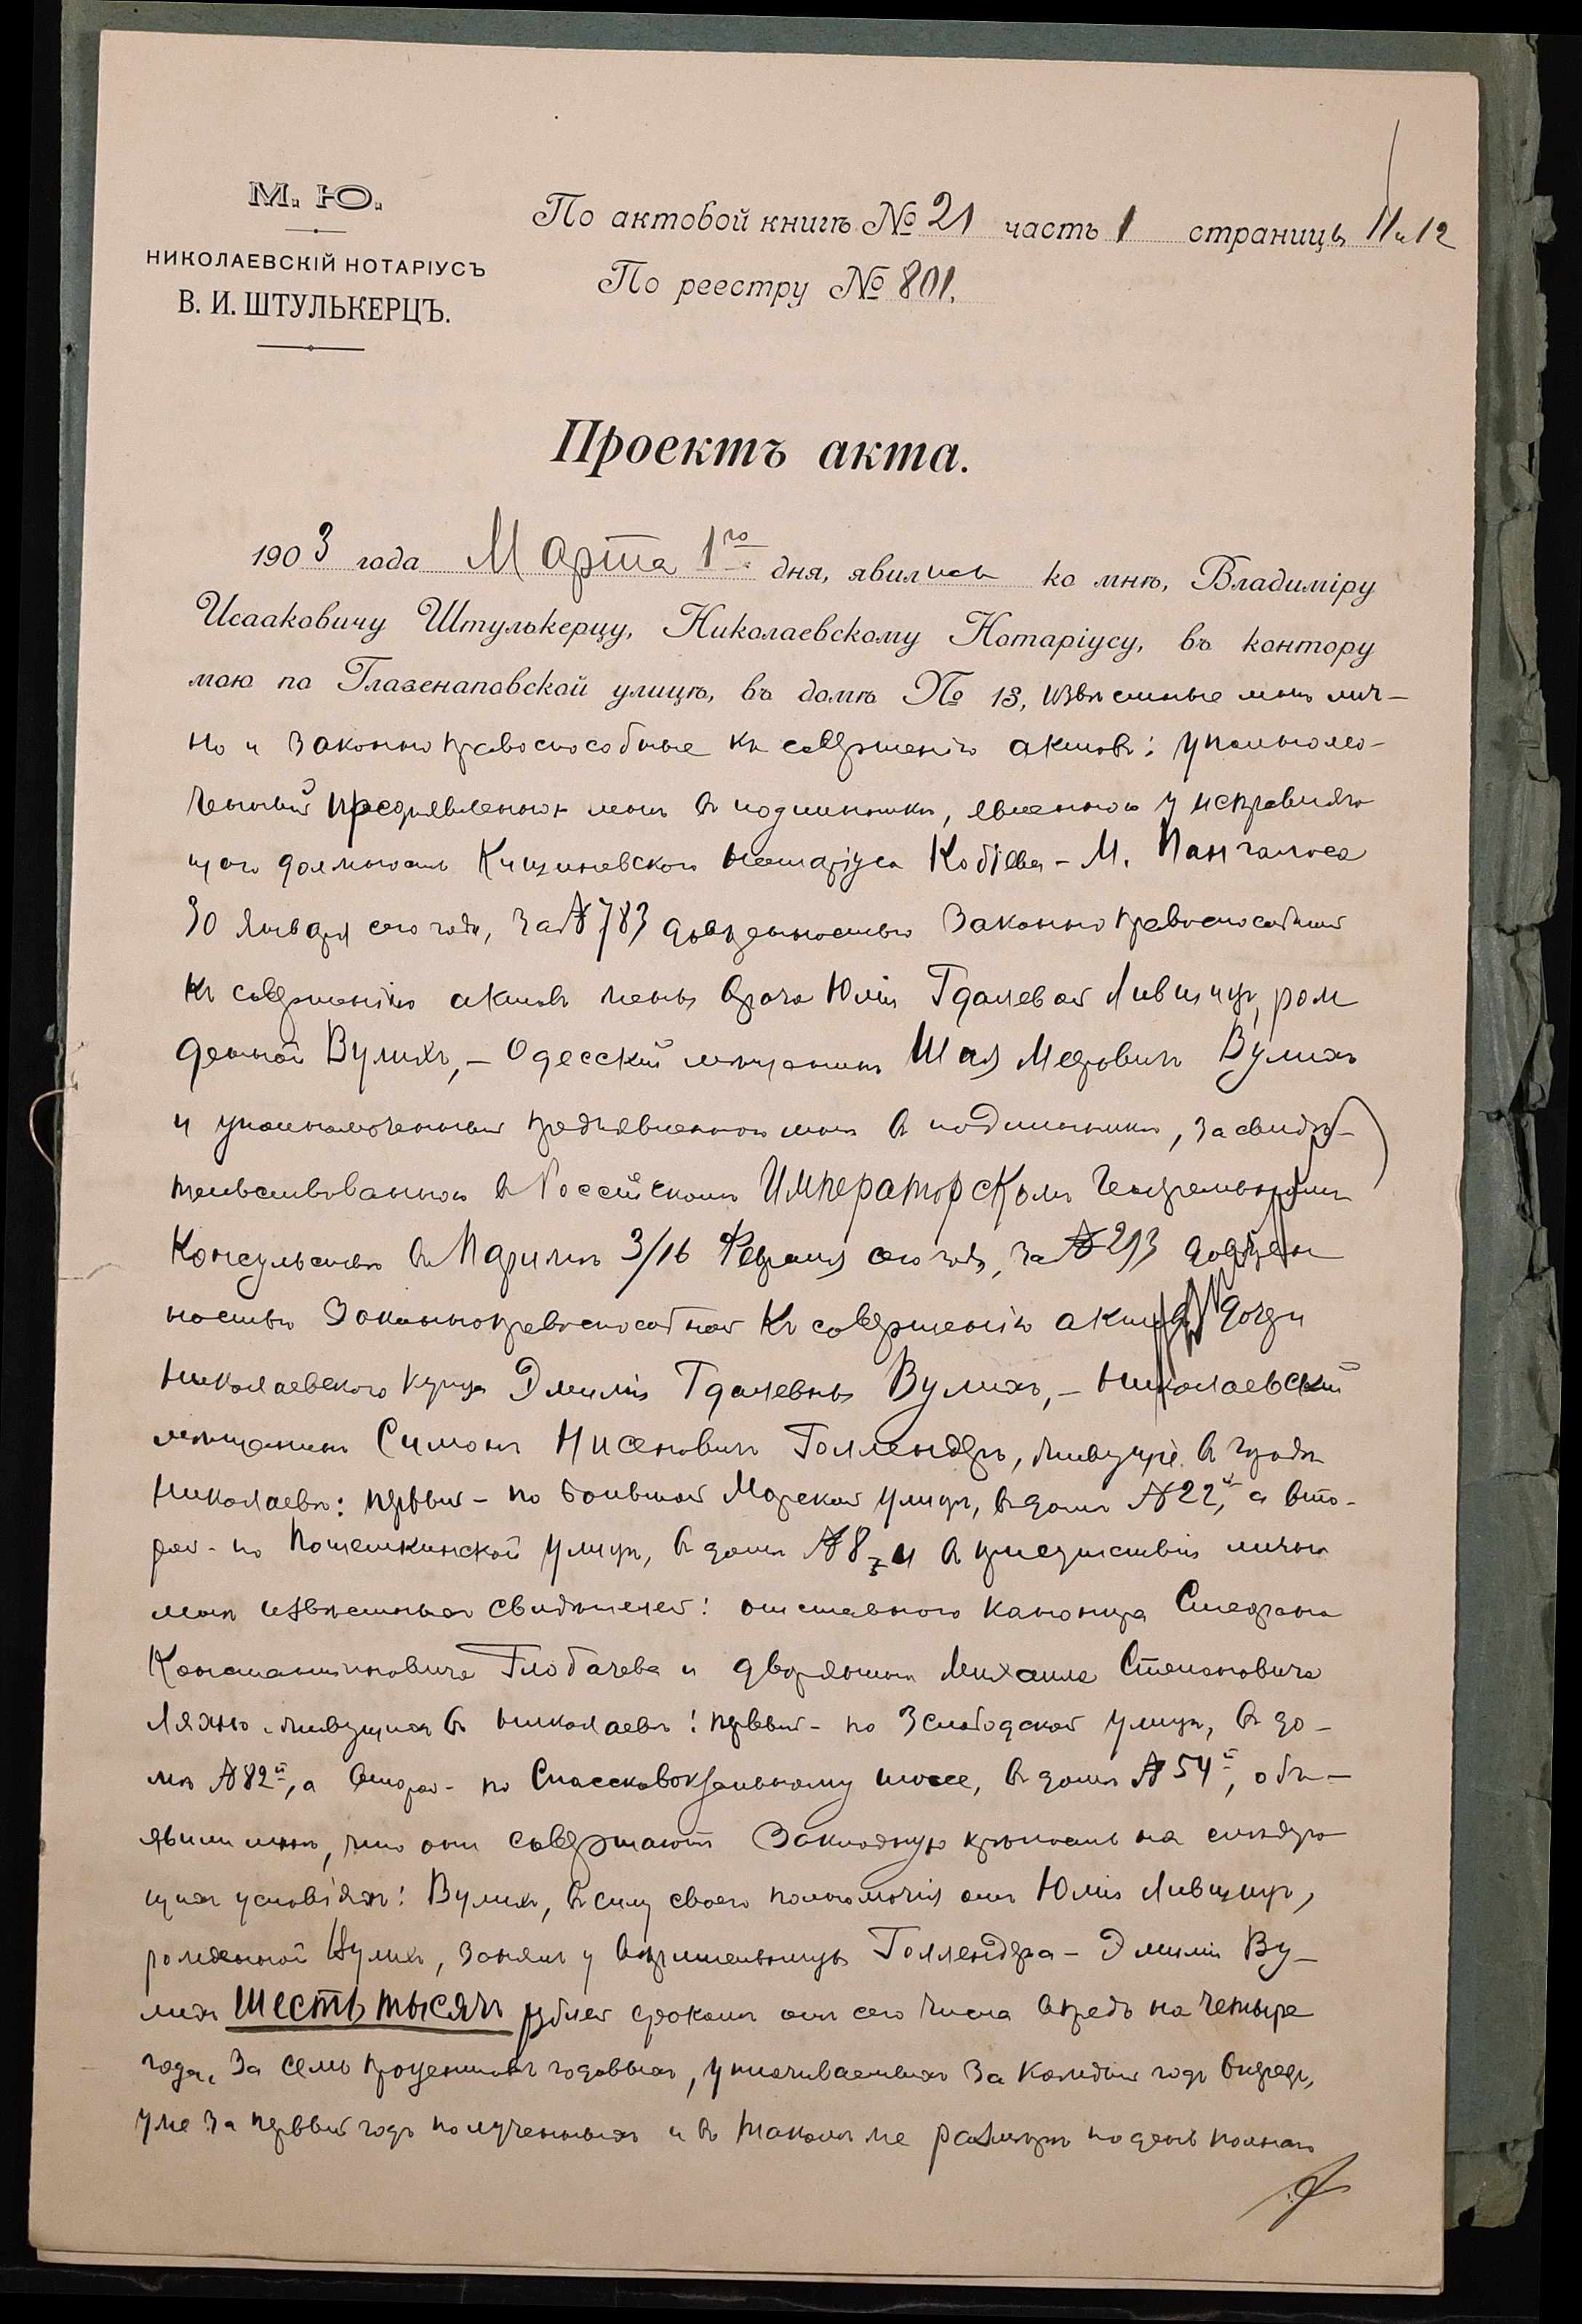 М. Ю.
НИКОЛАЕВСКІЙ НОТАРІУСЪ
В. И. ШТУЛЬКЕРЦЪ.
По актовой книгѣ № 21 часть 1 страницы 11 и 12
По реестру № 801.
Проектъ акта.
1903 года Марта 1го дня, явились ко мнѣ, Владиміру
Исааковичу Штулькерцу, Николаевскому Нотаріусу, въ контору
мою по Глазенаповской улицѣ, въ домѣ № 13, извѣстные мнѣ лич-
но и законноправоспособные къ совершенію актовъ: уполномо-
ченный предъявленною мнѣ въ подлинникѣ, явленною у исправляю
щаго должность Кишиневскаго нотаріуса Кобіева - М. Пангалоса
30 Января сего года, за № 783 довѣренностью законноправоспособной
къ совершенію актовъ жены врача Юліи Гдалевой Лившицъ, рож
денной Вулихъ, - Одесскій мѣщанинъ Шая Меровичъ Вулихъ
и уполномоченный предъявленною мнѣ въ подлинникѣ, засвидѣ-
тельствованною въ Россійскомъ Императорскомъ Генеральномъ
Консульствѣ въ Парижѣ 3/16 Февраля сего года, за № 293 довѣрен
ностью законноправоспособной къ совершенію актовъ дочери
Николаевскаго купца Эмиліи Гдалевны Вулихъ, - Николаевскій
мѣщанинъ Симонъ Нисеновичъ Голлендеръ, живущіе въ городѣ
Николаевѣ: первый - по Большой Морской улицѣ, въ домѣ № 22й, а вто-
рой - по Потемкинской улицѣ, въ домѣ № 8 и въ присутствіи лично
мнѣ извѣстныхъ свидѣтелей: отставного канонира Стефана
Константиновича Глобачева и дворянина Михаила Степановича
Ляхно живущихъ въ Николаевѣ: первый - по Слободской улицѣ, въ до-
мѣ № 82й, а второй - по Спассковокзальному шоссе, въ домѣ № 54й, объ-
явили мнѣ, что они совершаютъ закладную крѣпость на слѣдую
щихъ условіяхъ: Вулихъ, въ силу своего полномочія отъ Юліи Лившицъ,
рожденной Вулихъ, занялъ у вѣрительницы Голлендера - Эмиліи Ву-
лихъ шесть тысячъ рублей срокомъ отъ сего числа впредь на четыре
года, за семь процентовъ годовыхъ, уплачиваемыхъ за каждый годъ впередъ,
уже за первый годъ полученныхъ и въ такомъ же размѣрѣ по день полнаго